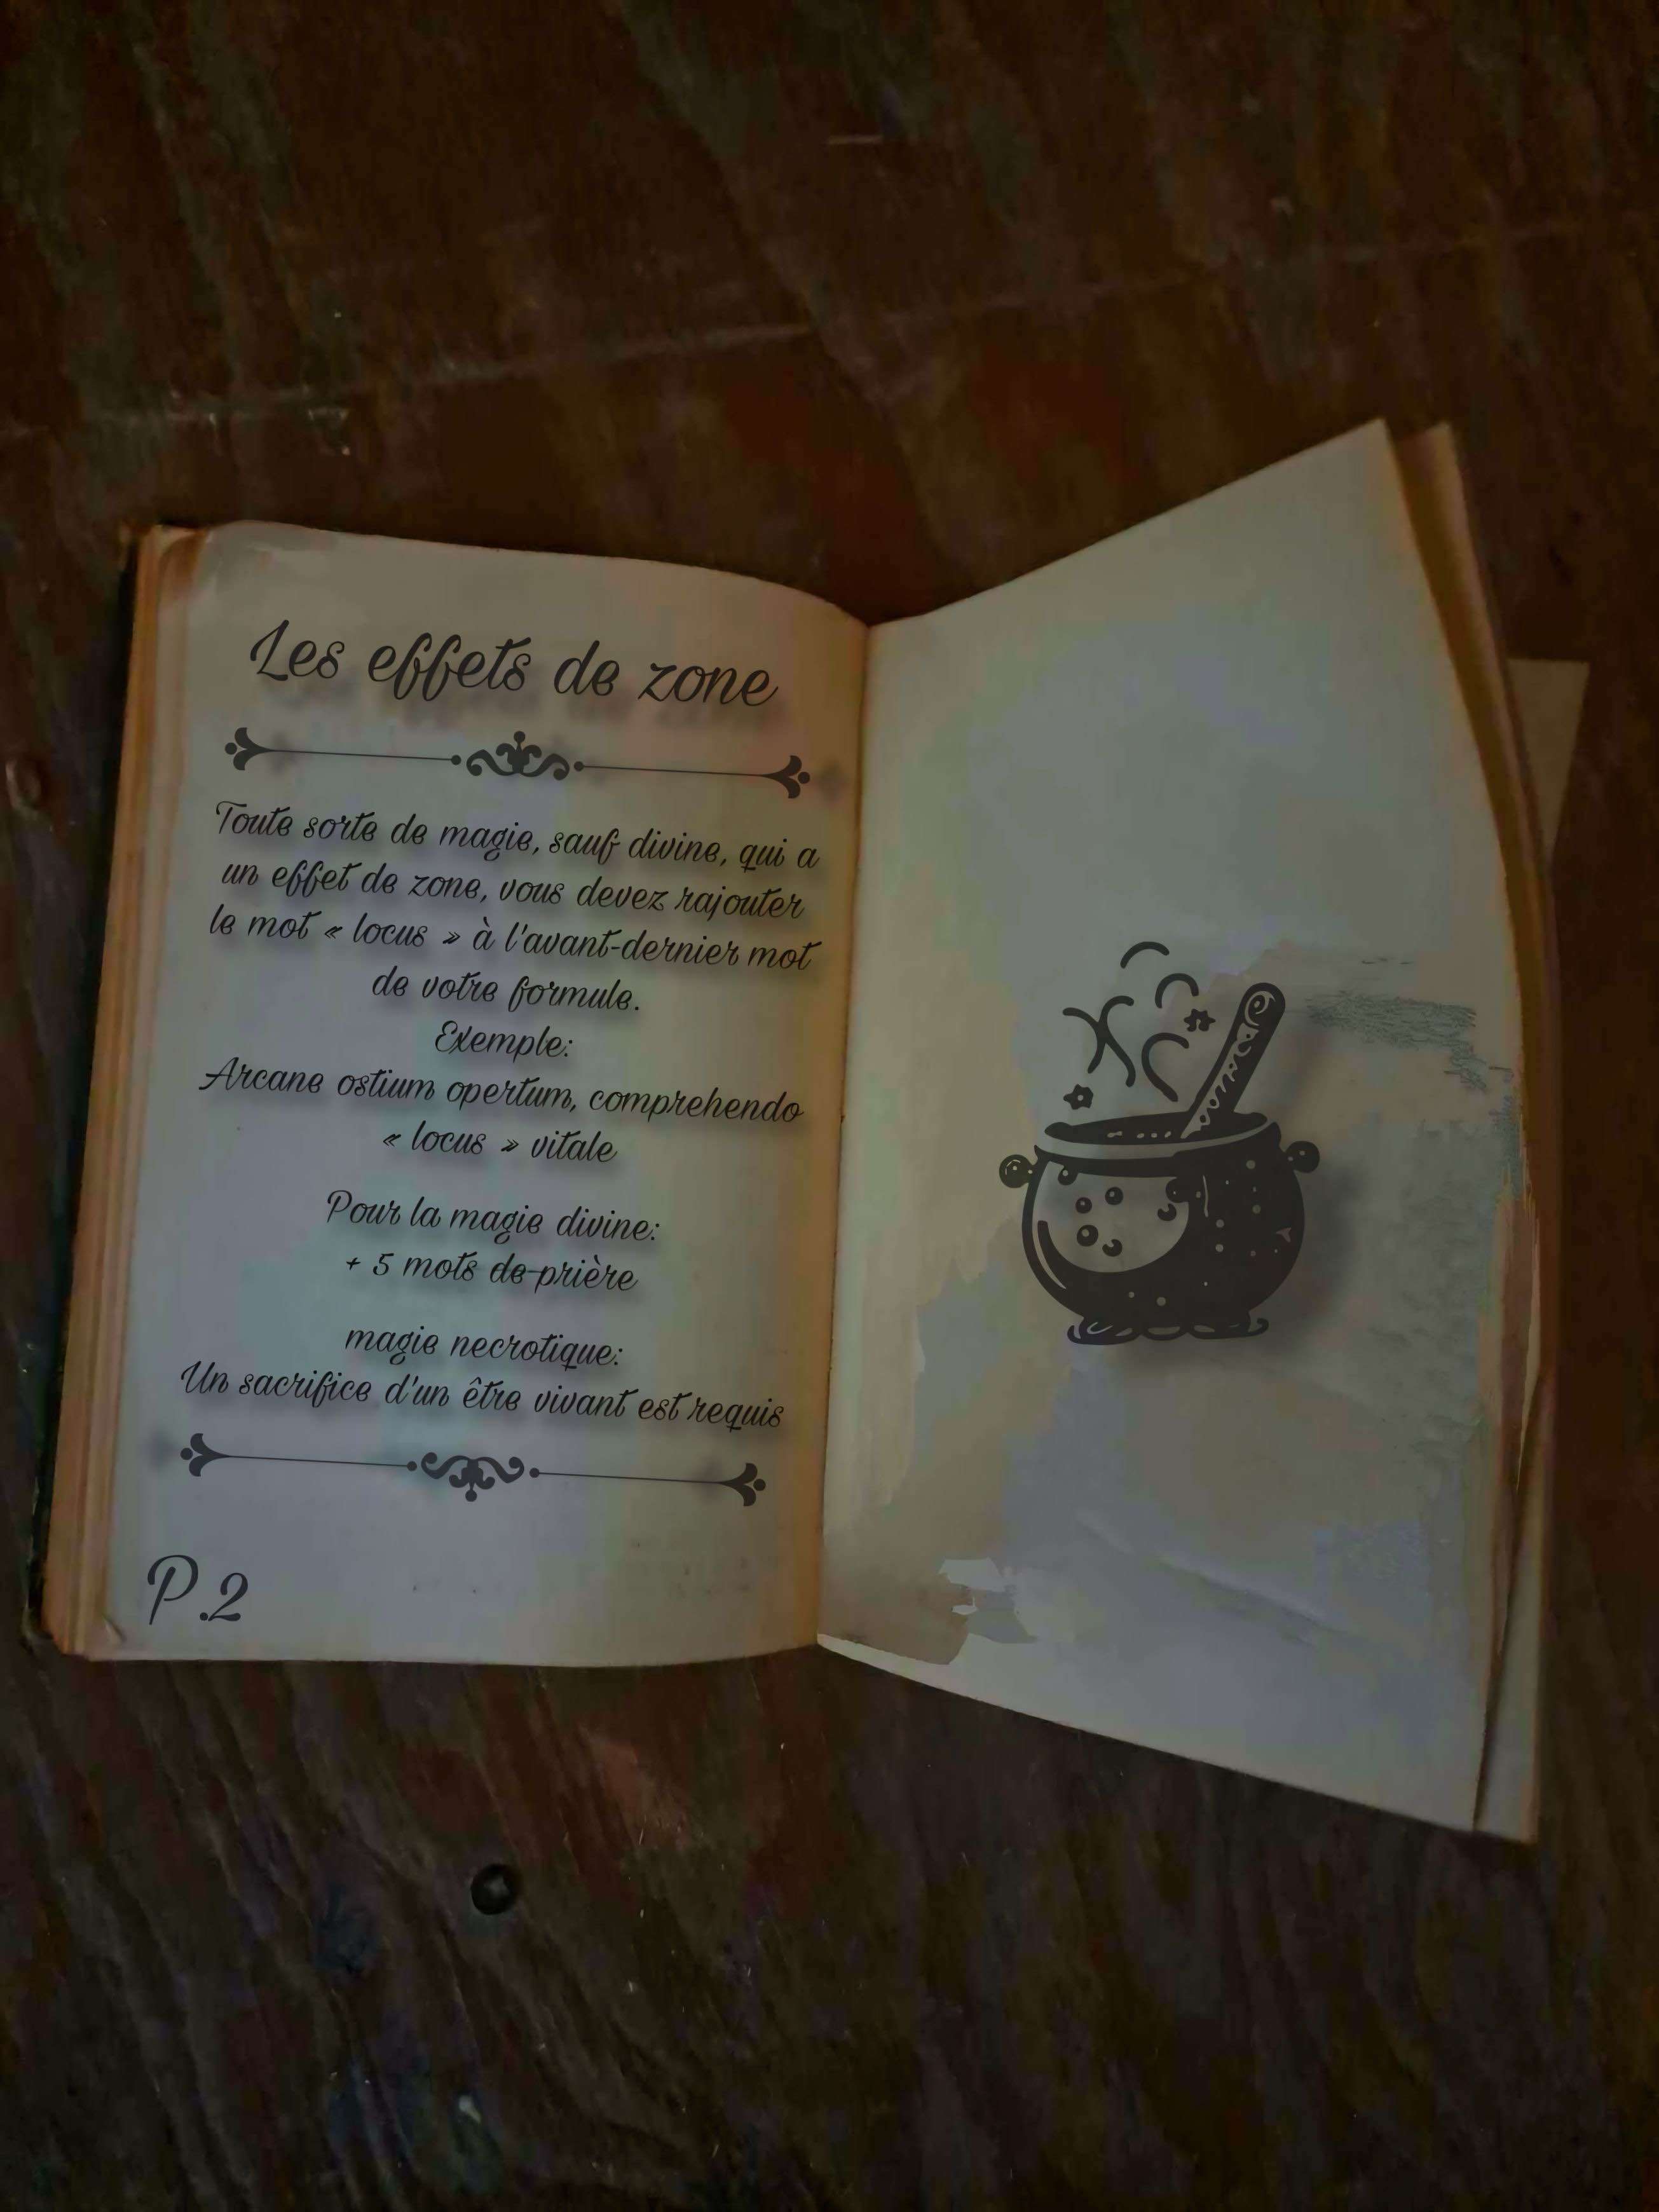 Les effets de zone
Toute sorte de magie, sauf divine, qui a
un effet de zone, vous devez rajouter
le mot « locus » à l'avant-dernier mot
de votre formule.
Exemple:
Arcane ostium opertum, comprehendo
« locus » vitale
Pour la magie divine:
+ 5 mots de prière
magie necrotique:
Un sacrifice d'un être vivant est requis
P.2